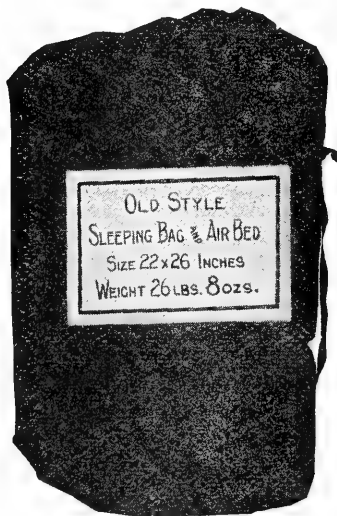 OLD STYLE
SLEEPING BAG & AIR BED
SIZE 22x26 INCHES
WEIGHT 26 LBS. 8 OZS.